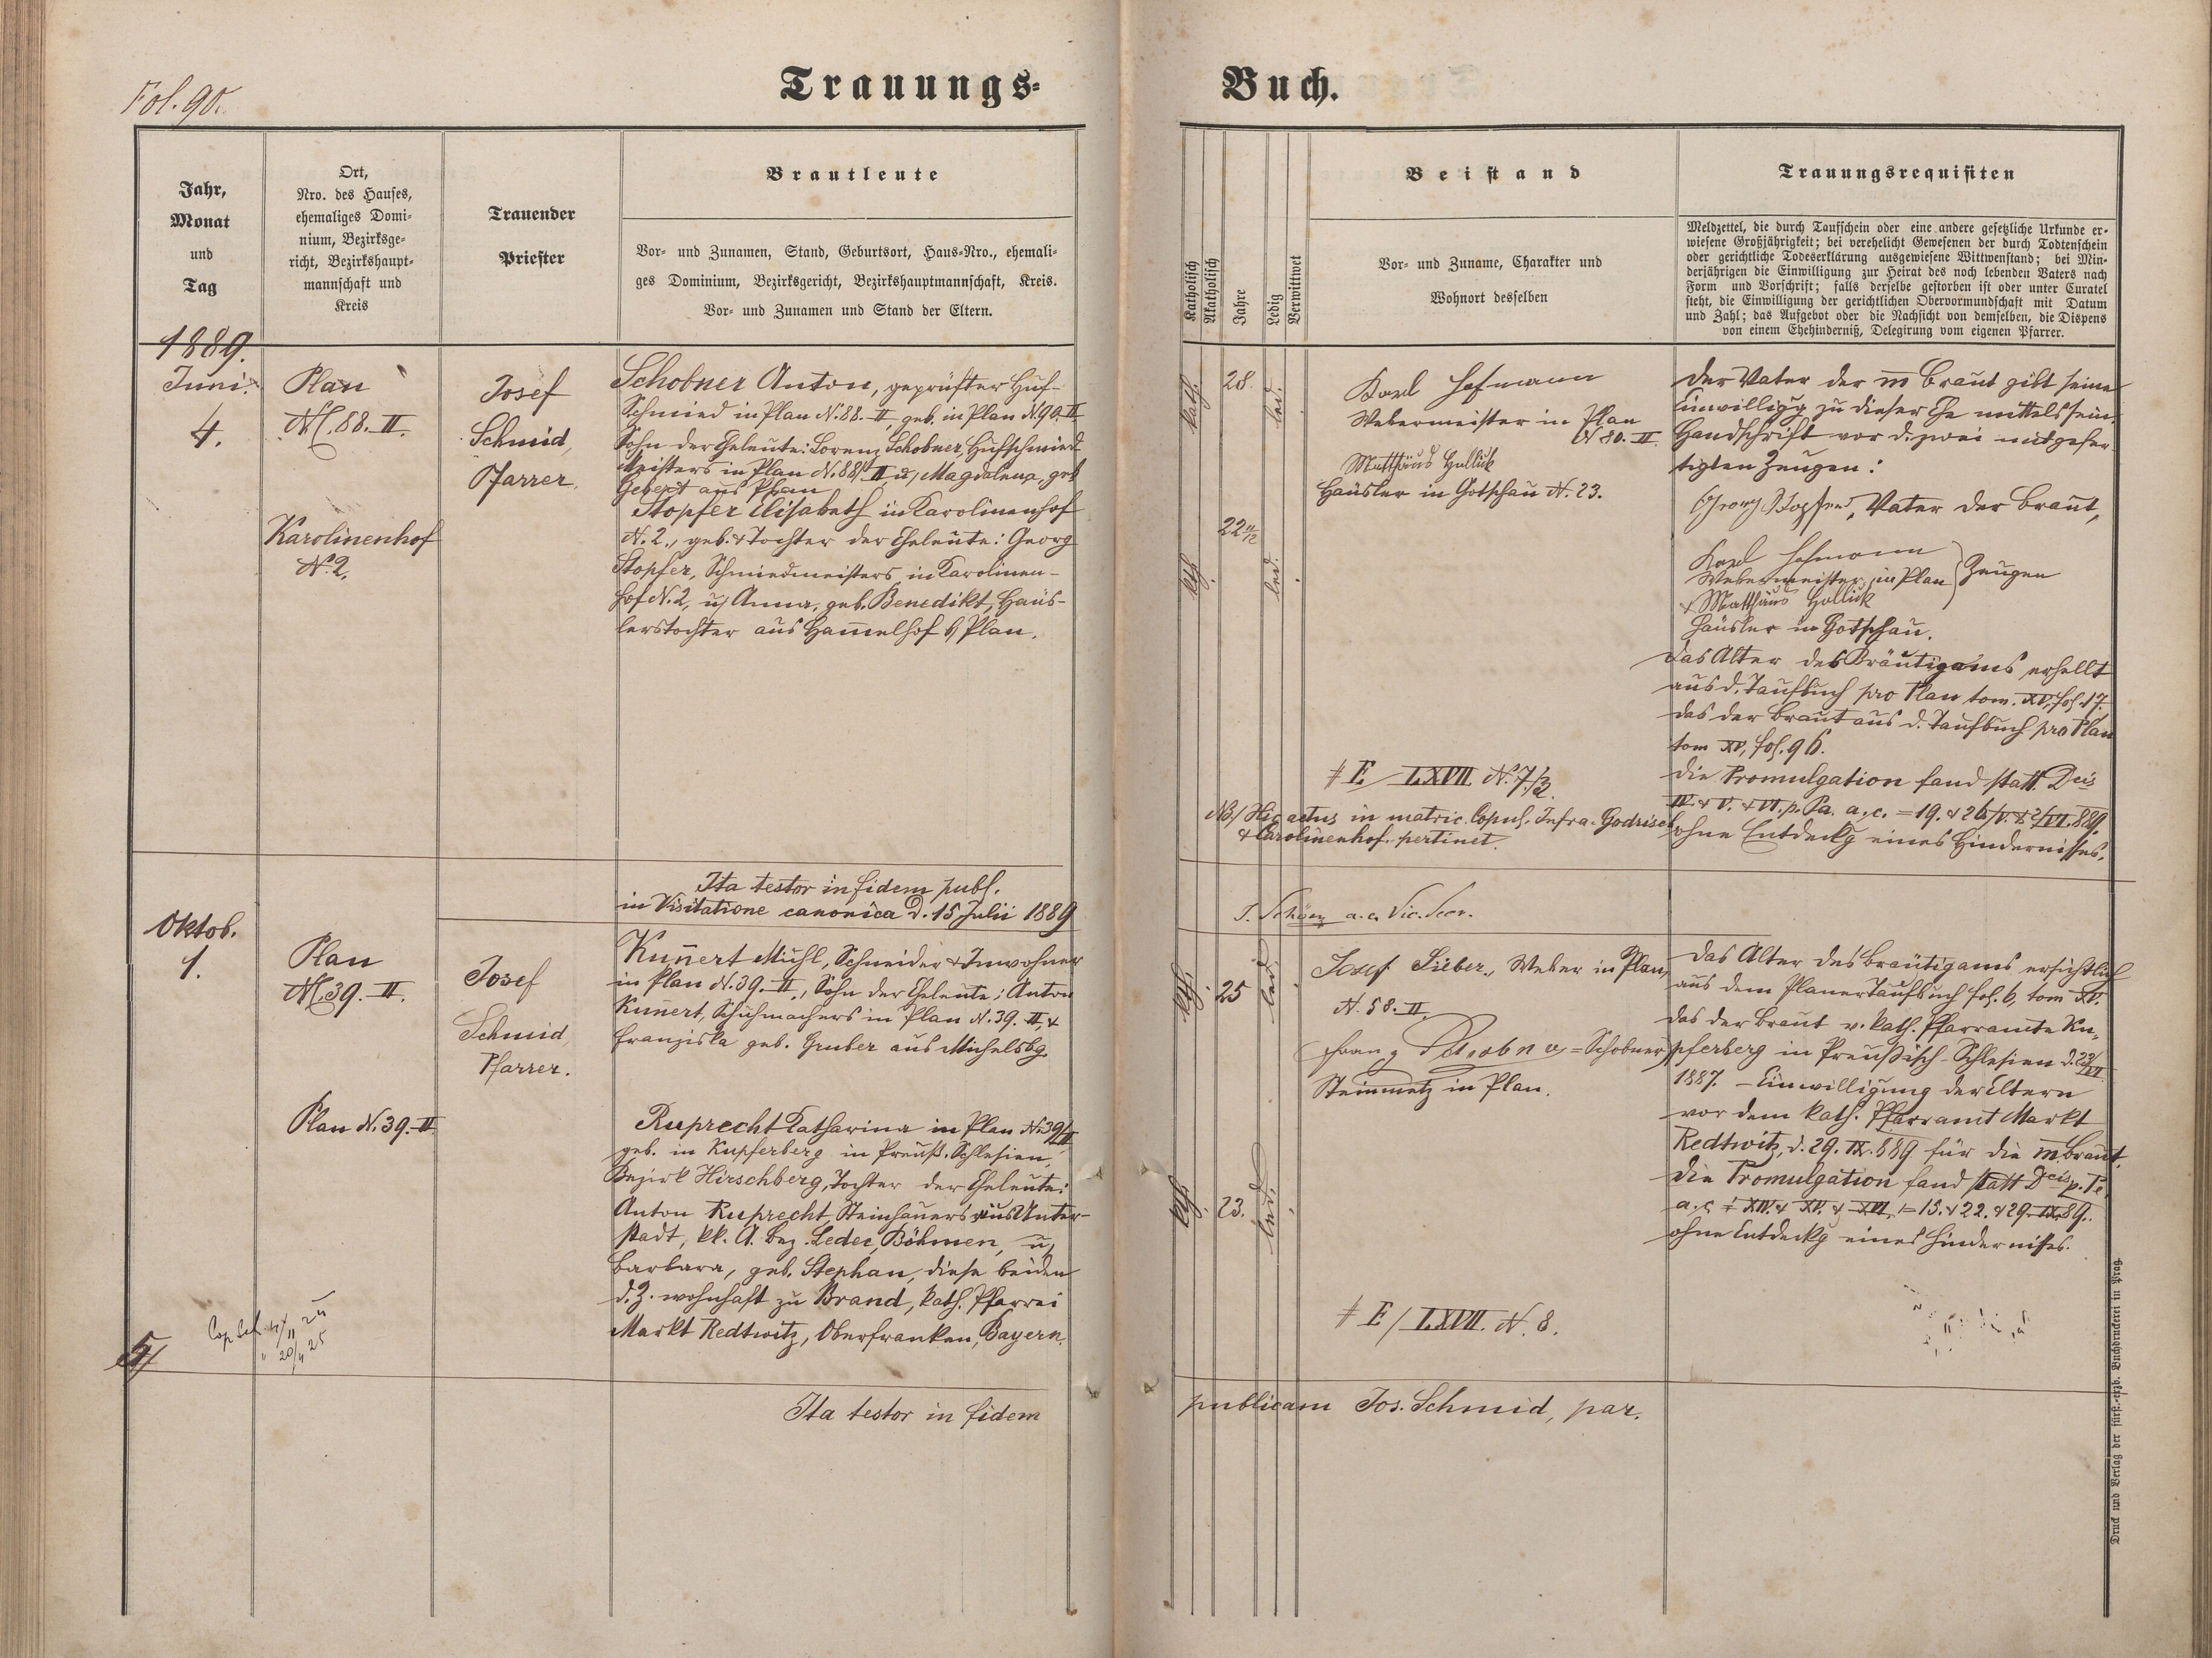 Fol. 90.
Trauungs=
Buch.
Jahr,
Monat
und
Tag
Ort,
Nro. des Hauses,
ehemaliges Domi=
nium, Bezirksge=
richt, Bezirkshaupt=
mannschaft und
Kreis
Trauender
Priester
Brautleute
Vor- und Zunamen, Stand, Geburtsort, Haus-Nro., ehemali=
ges Dominium, Bezirksgericht, Bezirkshauptmannschaft, Kreis.
Vor- und Zunamen und Stand der Eltern.
Katholisch
Akatholisch
Jahre
Ledig
Verwittwet
Beistand
Vor- und Zuname, Charakter und
Wohnort desselben
Trauungsrequisiten
Meldzettel, die durch Taufschein oder eine andere gesetzliche Urkunde er=
wiesene Großjährigkeit; bei verehelicht Gewesenen der durch Todtenschein
oder gerichtliche Todeserklärung ausgewiesene Wittwenstand; bei Min=
derjährigen die Einwilligung zur Heirat des noch lebenden Vaters nach
Form und Vorschrift; falls derselbe gestorben ist oder unter Curatel
steht, die Einwilligung der gerichtlichen Obervormundschaft mit Datum
und Zahl; das Aufgebot oder die Nachsicht von demselben, die Dispens
von einem Ehehinderniß, Delegirung vom eigenen Pfarrer.
1889.
Juni.
4.
Plan
N. 88. II.
Karolinenhof
N. 2.
Josef
Schmid,
Pfarrer.
Schobner Anton, geprüfter Huf-
Schmied in Plan N. 88. II, geb. in Plan N. 90. II
Sohn der Eheleute: Lorenz Schobner, Hufschmied
Meisters in Plan N. 88/II u, Magdalena, geb
aus Plan
Stopfer Elisabeth in Karolinenhof
N. 2., geb. & Tochter der Eheleute: Georg
Stopfer, Schmiedmeisters in Karolinen-
hof N. 2, u, Anna, geb. Benedikt, Häus-
lerstochter aus Ham̅elhof b/ Plan.
kath.
28.
led.
kth.
22 11/12
led.
Karl Hofmann
Webermeister in Plan
N 80. II.
Matthäus Hallick
Häusler in Gotschau N. 23.
# E LXVII N. 7/3.
NB/ Hic actus in matric. Copul. Infra-Godrisch
& Carolinenhof pertinet.
Der Vater der m Braut gibt seine
Einwilligg zu dieser Ehe mittels sein.
Handschrift vor d. zwei mitgefer
tigten Zeugen:
Georg Stopfer, Vater der Braut,
Karl Hofmann
Webermeister in Plan } Zeugen
+ Matthäus Hollick
Häusler in Gotschau.
Das Alter des Bräutigams erhellt
aus d. Taufbuch pro Plan tom. XV, fol. 17.
das der Braut aus d. Taufbuch pro Plan
tom XV, fol. 96.
Die Promulgation fand statt Dcis
IV. & V. & VI. p. Pa. a. c. = 19. & 26/V. & 2/VI. 889.
ohne Entdeckg eines Hindernisses.
Ita testor in fidem publ.
in Visitatione canonica d. 15 Julii 1889
J. Schönz a. c. Vic. Secr.
Oktob.
1.
Plan
N. 39. II.
Plan N. 39. II
Josef
Schmid,
Pfarrer.
Kun̅ert Michl, Schneider & Inwohner
in Plan N. 39. II., Sohn der Eheleute: Anton
Kun̅ert, Schuhmachers in Plan N. 39. II, &
Franziska geb. Gruber aus Michelsbg.
Ruprecht Katharina in Plan N. 39/II
geb. in Kupferberg in Preuß. Schlesien,
Bezirk Hirschberg, Tochter der Eheleute:
Anton Ruprecht, Steinhauers aus Unter-
stadt, kk. A. bez. Leder, Böhmen, u,
Barbara, geb. Stephan, diese beiden
d. Z. wohnhaft zu Brand, kath. Pfarrei
Markt Redtwitz, Oberfranken, Bayern.
kth.
25
led.
kth.
23.
led.
Josef Sieber, Weber in Plan,
N. 58. II.
Franz Schobner = Schobner
Steinmetz in Plan.
# E / LXVII. N. 8.
Das Alter des Bräutigams ersichtlich
aus dem Planer Taufbuch fol. 6, tom XV.
das der Braut v. kath. Pfarramte Ku-
pferberg in Preußisch-Schlesien d. 23/VI
1887. – Einwilligung der Eltern
vor dem kath. Pfarramt Markt
Redtwitz, d. 29. IX. 889 für die m. Braut.
Die Promulgation fand statt Dcis p. Pe.
a. c. XIV. & XV. & XVI. = 15. & 22. & 29. IX. 89.
ohne Entdeckg eines Hindernisses.
Ita testor in fidem
publicam Jos. Schmid, par.
Druck und Verlag der fürst.-erzb. Buchdruckerei in Prag.